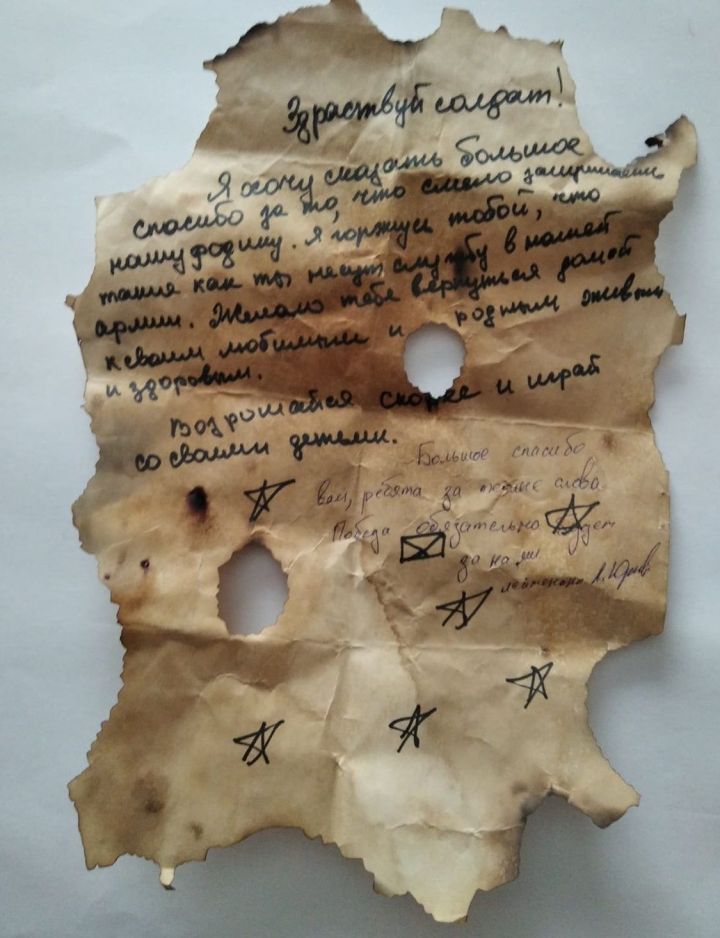 Здраствуй солдат!
Я хочу сказать большое
спасибо за то, что смело защищаешь
нашу родину. Я горжусь тобой, что
такие как ты несут службу в нашей
армии. Желаю тебе вернуться домой
к своим любимым и родным живым
и здоровым.
Возрощайся скорее и играй
со своими детьми.
Большое спасибо
вам, ребята за слова
Победа обязательно будет
за нами
лейтенант А.